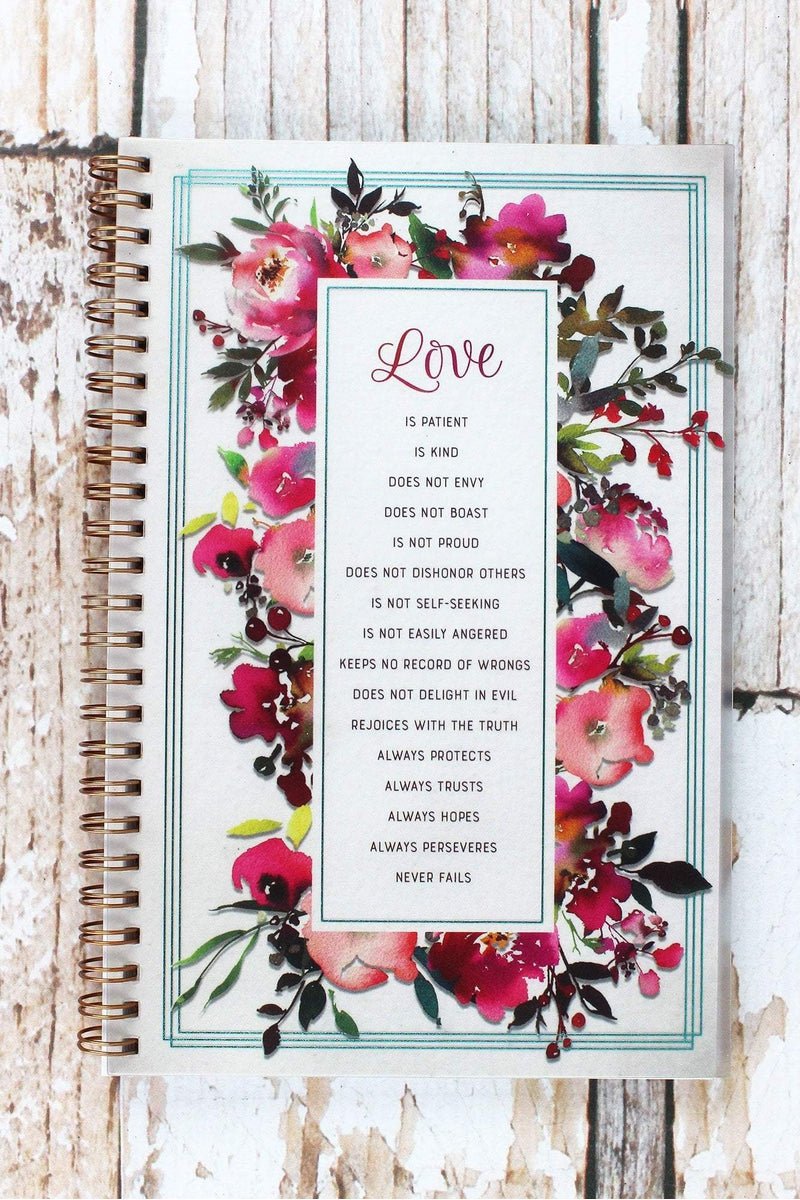 Love
IS PATIENT
IS KIND
DOES NOT ENVY
DOES NOT BOAST
IS NOT PROUD
DOES NOT DISHONOR OTHERS
IS NOT SELF-SEEKING
IS NOT EASILY ANGERED
KEEPS NO RECORD OF WRONGS
DOES NOT DELIGHT IN EVIL
REJOICES WITH THE TRUTH
ALWAYS PROTECTS
ALWAYS TRUSTS
ALWAYS HOPES
ALWAYS PERSEVERES
NEVER FAILS